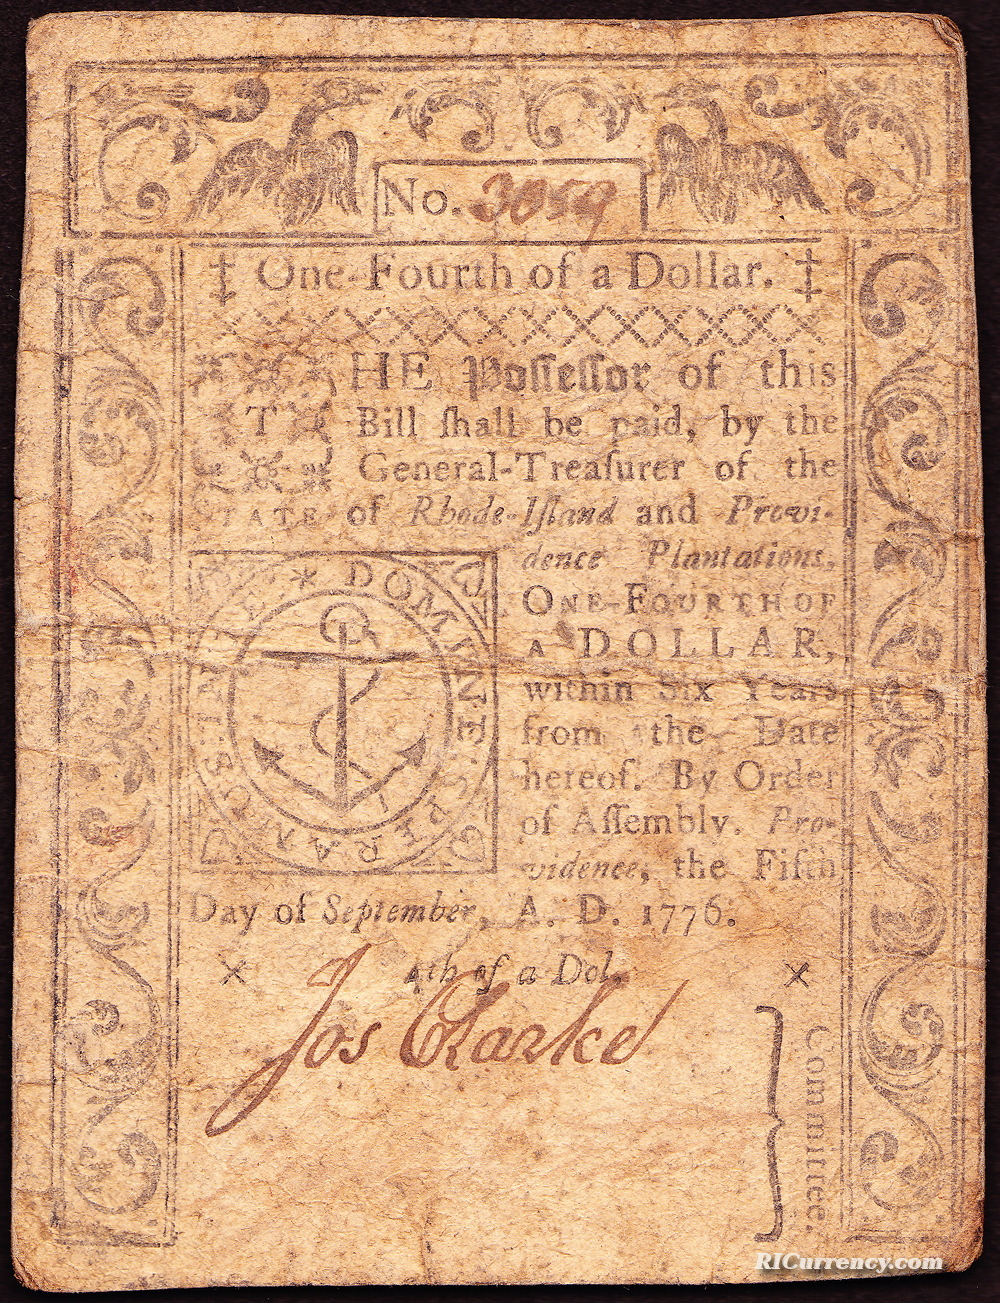 No. 3059
‡ One-Fourth of a Dollar. ‡
THE Poſſeſſor of this
Bill ſhall be paid, by the
General-Treaſurer of the
STATE of Rhode-Iſland and Provi-
dence Plantations,
ONE-FOURTH OF
A DOLLAR,
within Six Years
from the Date
hereof. By Order
of Aſſembly. Pro-
vidence, the Fifth
Day of September, A. D. 1776.
IN TE * DOMINE. SPERAMUS.
4th of a Dol.
Jos Clarke
Committee.
RICurrency.com